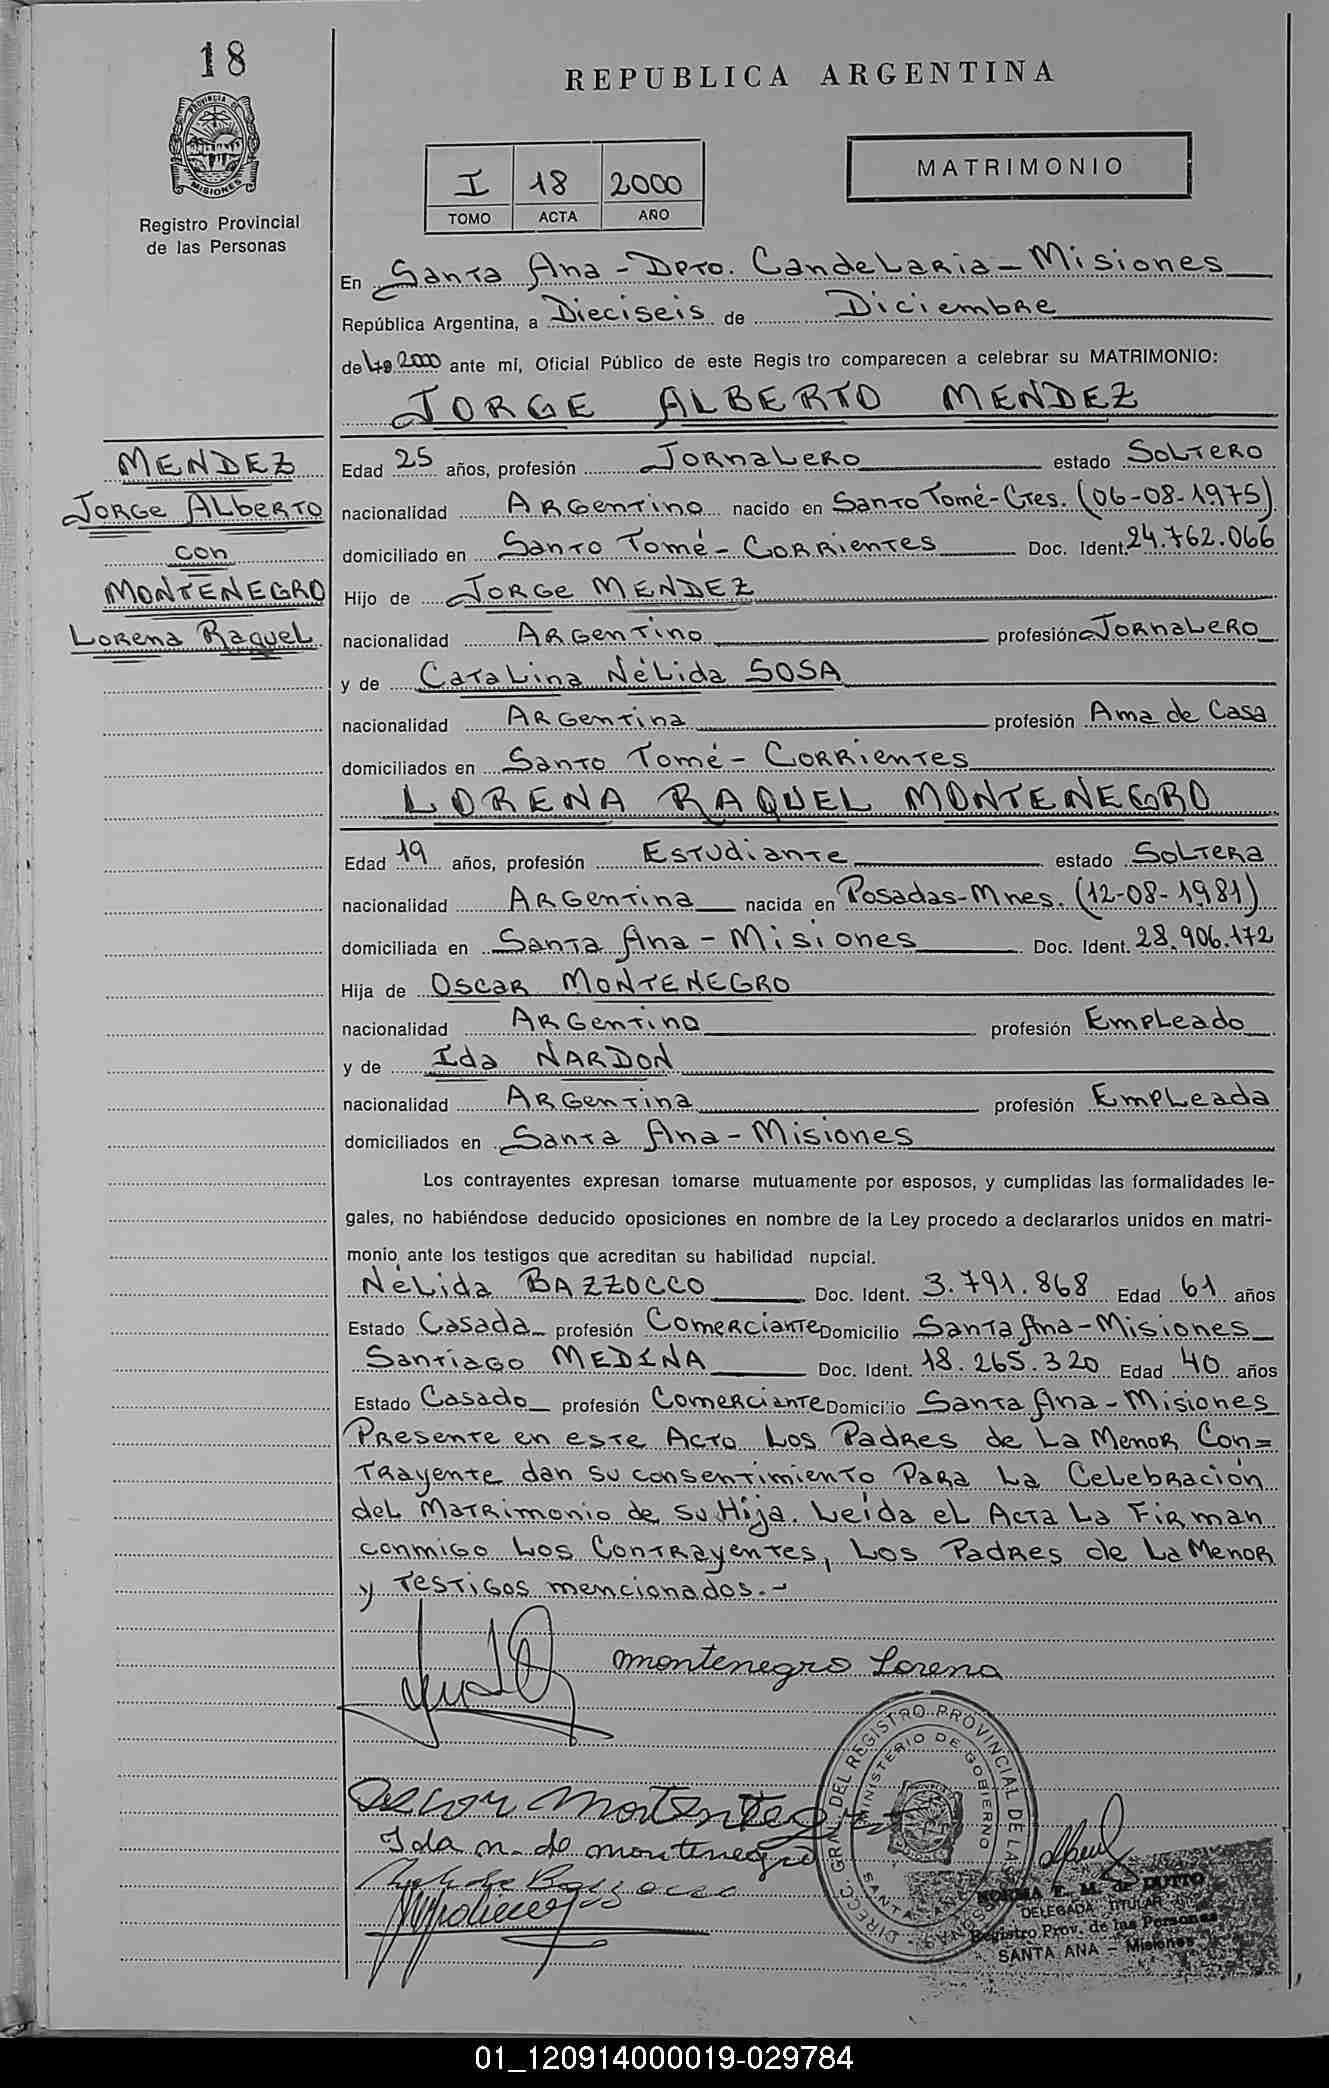 18
PROVINCIA DE
MISIONES
Registro Provincial
de las Personas
REPUBLICA ARGENTINA
MATRIMONIO
I 18 2000
TOMO ACTA AÑO
En Santa Ana - Dpto. Candelaria - Misiones
República Argentina, a Dieciseis de Diciembre
de 2000 ante mí, Oficial Público de este Registro comparecen a celebrar su MATRIMONIO:
JORGE ALBERTO MENDEZ
MENDEZ
Jorge Alberto
con
MONTENEGRO
Lorena Raquel
Edad 25 años, profesión Jornalero estado Soltero
nacionalidad Argentino nacido en Santo Tomé-Ctes. (06-08-1975)
domiciliado en Santo Tomé - Corrientes Doc. Ident. 24.762.066
Hijo de Jorge MENDEZ
nacionalidad Argentino profesión Jornalero
y de Catalina Nélida SOSA
nacionalidad Argentina profesión Ama de Casa
domiciliados en Santo Tomé - Corrientes
LORENA RAQUEL MONTENEGRO
Edad 19 años, profesión Estudiante estado Soltera
nacionalidad Argentina nacida en Posadas-Mnes. (12-08-1981)
domiciliada en Santa Ana - Misiones Doc. Ident. 28.906.172
Hija de Oscar MONTENEGRO
nacionalidad Argentino profesión Empleado
y de Ida NARDON
nacionalidad Argentina profesión Empleada
domiciliados en Santa Ana - Misiones
Los contrayentes expresan tomarse mutuamente por esposos, y cumplidas las formalidades le-
gales, no habiéndose deducido oposiciones en nombre de la Ley procedo a declararlos unidos en matri-
monio ante los testigos que acreditan su habilidad nupcial.
Nélida BAZZOCCO Doc. Ident. 3.791.868 Edad 61 años
Estado Casada profesión Comerciante Domicilio Santa Ana - Misiones
Santiago MEDINA Doc. Ident. 18.265.320 Edad 40 años
Estado Casado profesión Comerciante Domicilio Santa Ana - Misiones
Presente en este Acto Los Padres de La Menor Con=
trayente dan su consentimiento Para La Celebración
del Matrimonio de su Hija. Leída el Acta La Firman
conmigo Los Contrayentes, Los Padres de La Menor
y Testigos mencionados.-
montenegro Lorena
Oscar Montenegro
Ida n. de montenegro
DIRECC. GRAL. DEL REGISTRO PROVINCIAL DE LAS PERSONAS
MINISTERIO DE GOBIERNO
SANTA ANA
NORMA E. M. de DUTTO
DELEGADA TITULAR
Registro Prov. de las Personas
SANTA ANA - Misiones
01_120914000019-029784